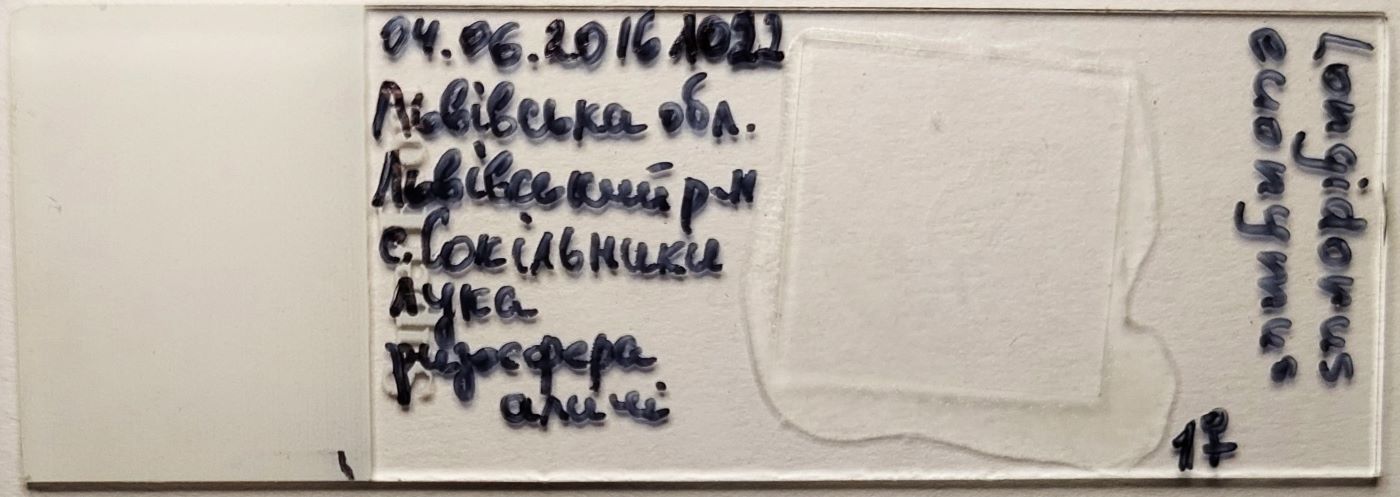 04.06.2016 1022
Львівська обл.
Львівський р-н
с. Сокільники
лука
ризосфера
аличі
Longidorus
euonymus
1♀